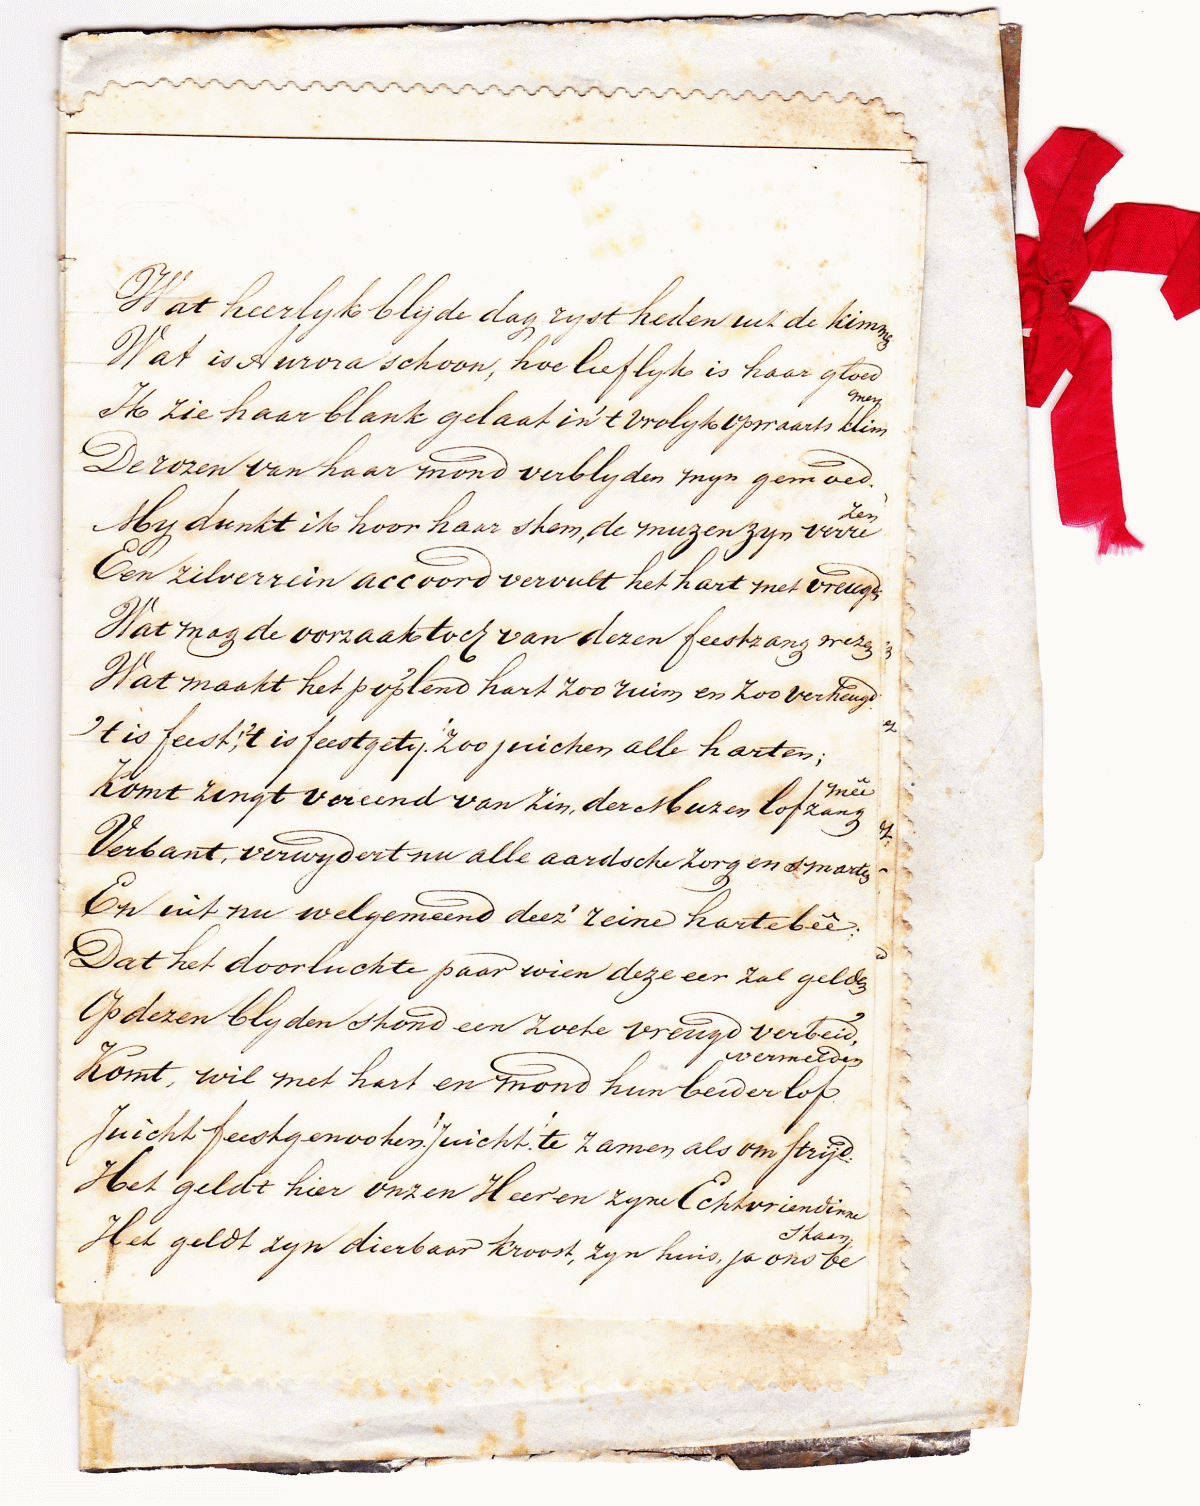 Wat heerlyk blijde dag ryst heden uit de kimmen
Wat is Aurora schoon, hoe lieflyk is haar gloed
Ik zie haar blank gelaat in 't vrolyk opwaarts klimmen
De rozen van haar mond verblyden myn gemoed.
My dunkt ik hoor haar stem, de muzen zyn verrezen
Een zilverrein accoord vervult het hart met vreugd,
Wat mag de oorzaak toch van dezen feestzang wezen
Wat maakt het pop'lend hart zoo ruim en zoo verheugd.
't is feest! 't is feestgety! Zoo juichen alle harten;
Komt zingt vereend van zin, der Muzen lofzang meê
Verbant, verwydert nu alle aardsche zorg en smarten
En uit nu welgemeend deez' reine hartebeê:
Dat het doorluchte paar wien deze eer zal gelden
Op dezen blyden stond een zoete vreugd verbeid,
Komt, wil met hart en mond hun beider lof vermelden
Juicht feestgenooten! Juicht! te zamen als om strijd.
Het geldt hier onzen Heer en zyne Echtvriendinne
Het geldt zyn dierbaar kroost, zyn huis, ja ons bestaan